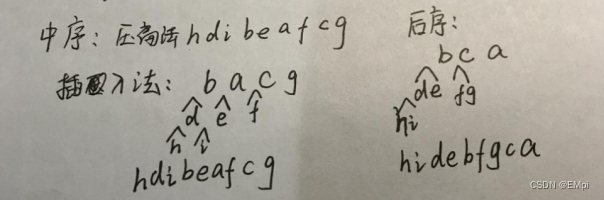 中序：压高法 h d i b e a f c g
插入法：b a c g
d e f
h i
h d i b e a f c g
后序：
b c a
d e f g
h i
h i d e b f g c a
CSDN @EMpi